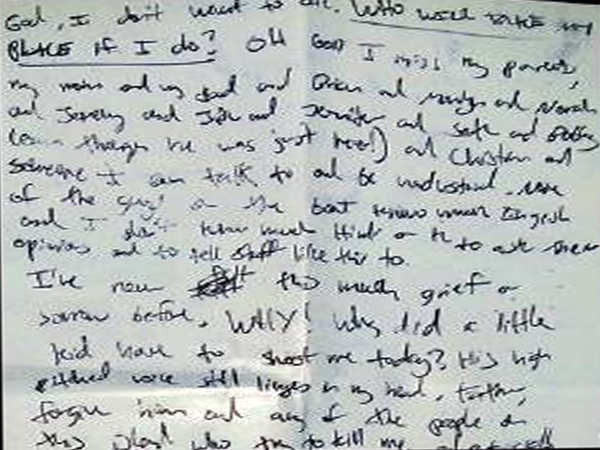 God, I don't want to die. WHO WILL TAKE MY
PLACE if I do? OH GOD I miss my parents,
my mom and my dad and and and and
and and and Jennifer and Seth and Bobby
(even though he was just here!) and Christian and
someone I can talk to and be understood. None
of the guys on the boat knows much English
and I don't know much Hindi or to ask their
opinions and to tell stuff like this to.
I've never felt this much grief or
sorrow before. WHY! Why did a little
kid have to shoot me today? His high
pitched voice still lingers in my head. Father,
forgive him and any of the people on
this island who try to kill me,